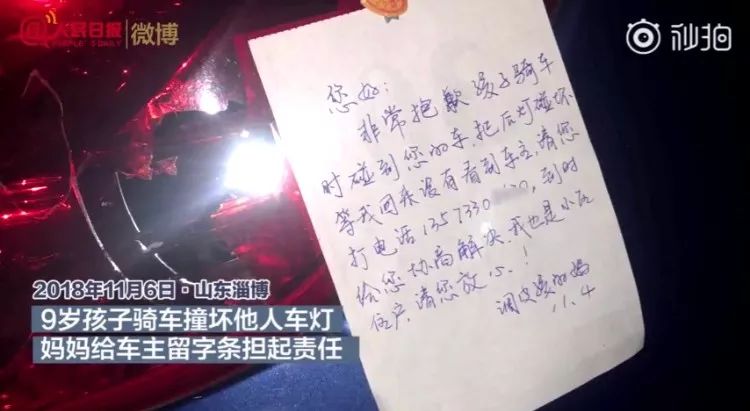 人民日报
PEOPLE'S DAILY
微博
秒拍
您好:
非常抱歉孩子骑车
时碰到您的车,把后灯碰坏
等我回来没有看到车主,请您
打电话1357330 0,到时
给您协商解决,我也是小区
住户,请您放心!
调皮孩的妈
11.4
2018年11月6日·山东淄博
9岁孩子骑车撞坏他人车灯
妈妈给车主留字条担起责任